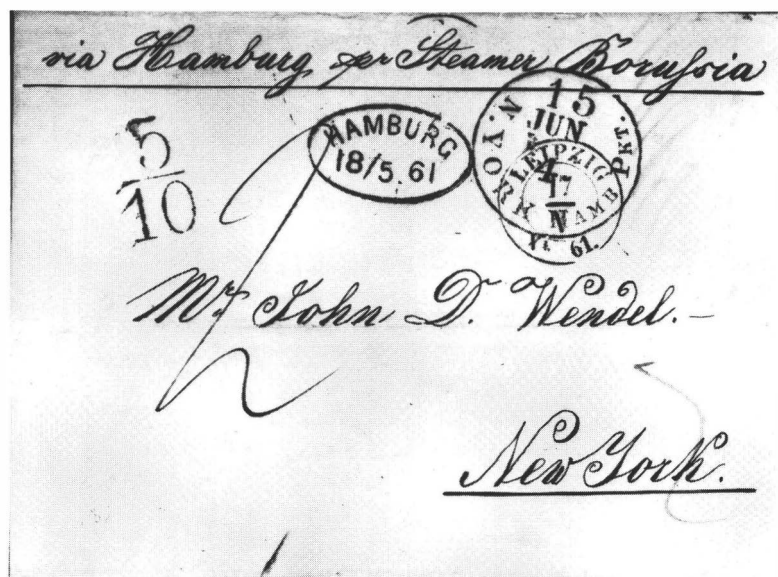 via Hamburg per Steamer Borussia
5
10
HAMBURG
18/5.61
N. YORK HAMB PKT.
15
JUN
4
LEIPZIG
17
61.
Mr. John D. Wendel.–
New York.